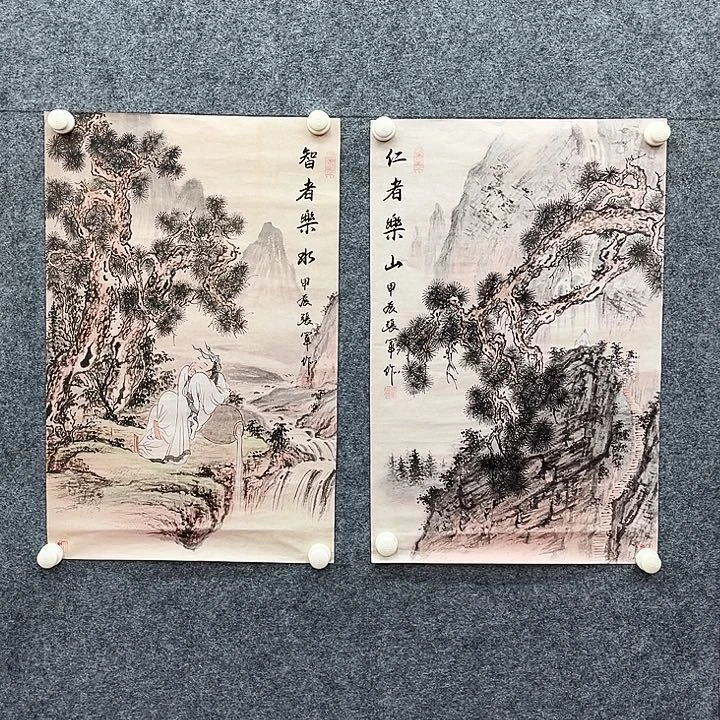 智者樂水
甲辰張軍作
仁者樂山
甲辰張軍作